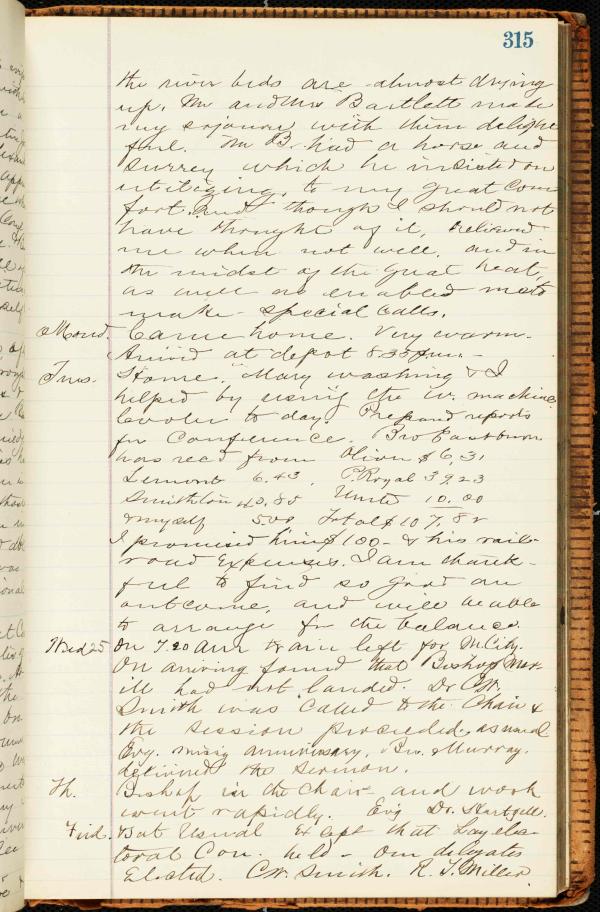 315
the river beds are almost drying
up. Mr and Mrs Bartlett made
my sojourn with them delight
ful. Mr B. had a horse and
surrey which he insisted on
to my great Com
fort. And though I should not
have thought of it, relieved
me when not well, and in
the midst of the great heat,
as well as enabled me to
make special calls.
Mond. Came home. Very warm.
Arrived at depot 8.35 p.m. -
Tues. Home. Mary washing & I
helped by using the W. machine
Cooler to day. Prepared reports
for Conference. Bro Eastburn
has recd from Oliver $6,31
Lemont 6.43, P. Royal 39,23
Smithton 40,85 Units 10.00
& myself 5.00 Total $107,82
I promised him $100- & his rail-
road Expenses. I am thank-
ful to find so good an
outcome, and will be able
to arrange for the balance.
Wed 25 On 7.20 am train left for McCity.
On arriving found that Bishop Mer-
ill had not landed. Dr C.W.
Smith was called to the Chair &
the session proceeded, as usual
Evg. missy anniversary, Bro. Murray.
delivered the sermon.
Th. Bishop in the Chair and work
went rapidly. Evg Dr. Hartzell.
Frid. Usual Except that Lay elec-
toral Con. held - our delegates
Elected. C.W. Smith. R. T. Miller